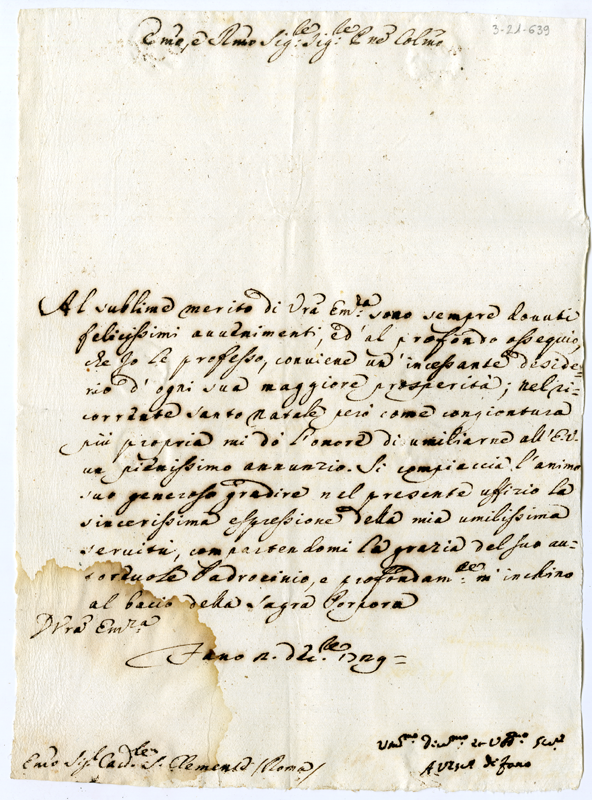 3-21-639
Emo, e Rmo Sig:re Sig:re Pne Colmo
Al sublime merito di Vra Em:za sono sempre dovuti
felicissimi avvenimenti, ed' al profondo ossequio,
che Io le professo, conviene un' incessante deside=
rio d' ogni sua maggiore prosperità; nel ri=
corrente santo natale però come congiontura
più propria mi dò l'onore di umiliarne all' E.V.
un pienissimo annunzio. Si compiaccia l'animo
suo generoso gradire nel presente uffizio la
sincerissima espressione della mia umilissima
servitù, compartendomi la grazia del suo au=
torevole Padrocinio, e profondam:te m' inchino
al bacio della Sagra Porpora
D Vra Em:za
Fano 12. d 1729=
Um:mo di:mo et Obb:mo Ser:e
A Vesc di fano
Emo Sig:r Card:le S. Clemente /Roma/